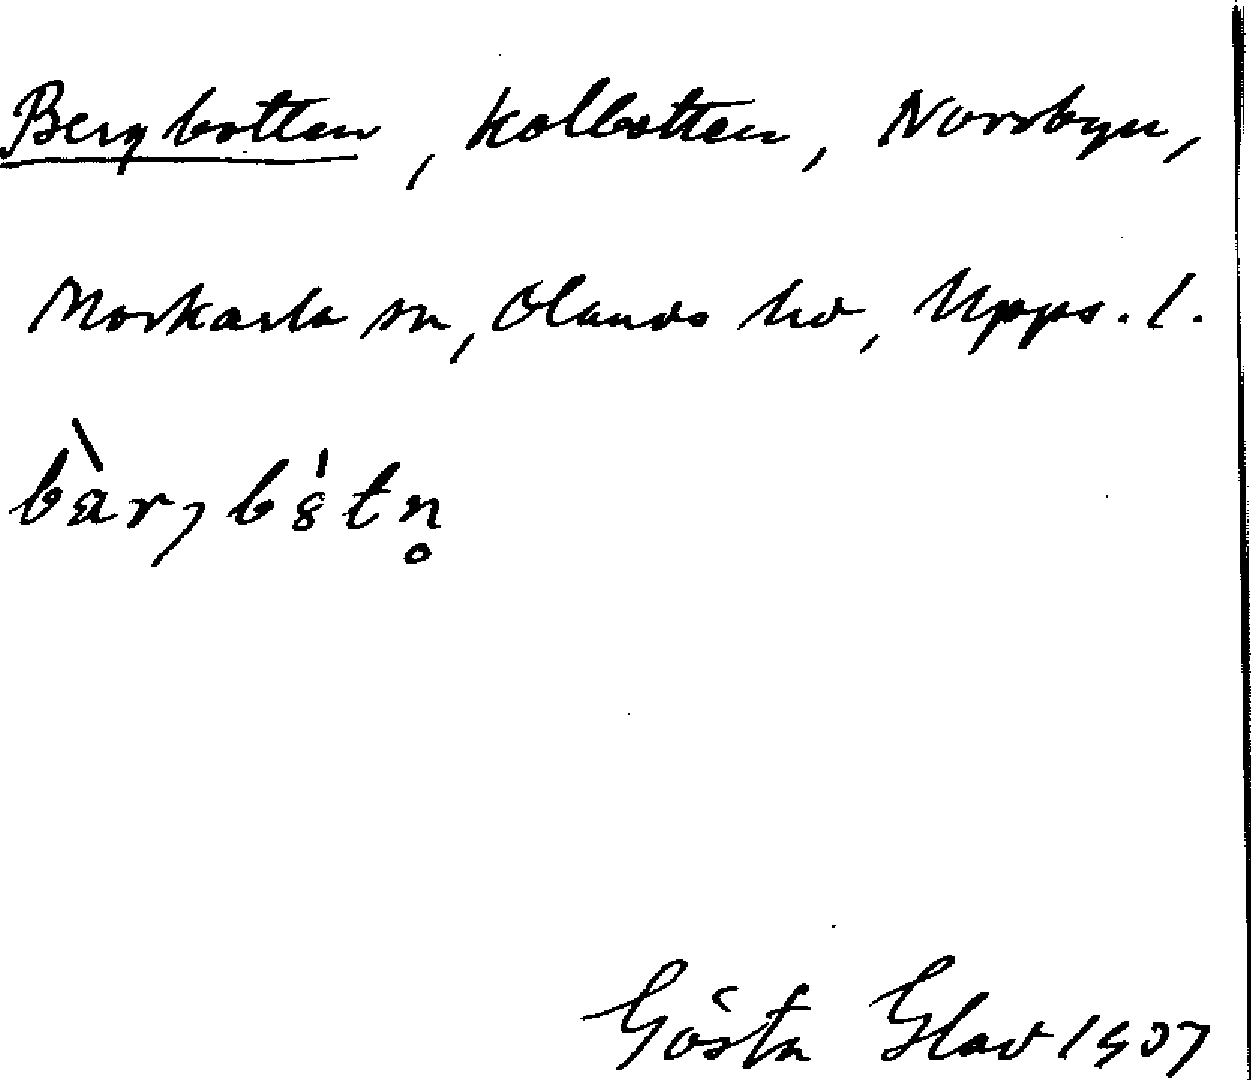 Bergbotten, kolbotten, Norrbyn,
Morkarla sn, Olands hd, Upps. l.
Gösta Glad 1907